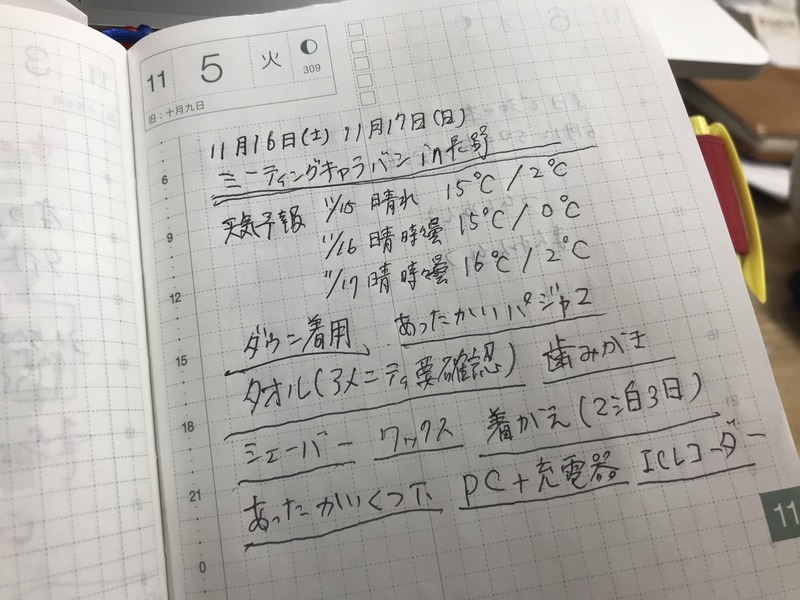 11 5 火 309
旧：十月九日
11月16日(土) 11月17日(日)
ミーティングキャラバン in長野
天気予報 11/15 晴れ 15℃ / 2℃
11/16 晴時々曇 15℃ / 0℃
11/17 晴時々曇 16℃ / 2℃
ダウン着用、あったかいパジャマ
タオル(アメニティ要確認) 歯みがき
シェーバー ワックス 着がえ(2泊3日)
あったかいくつ下 PC+充電器 ICレコーダー
6
9
12
15
18
21
0
11
3